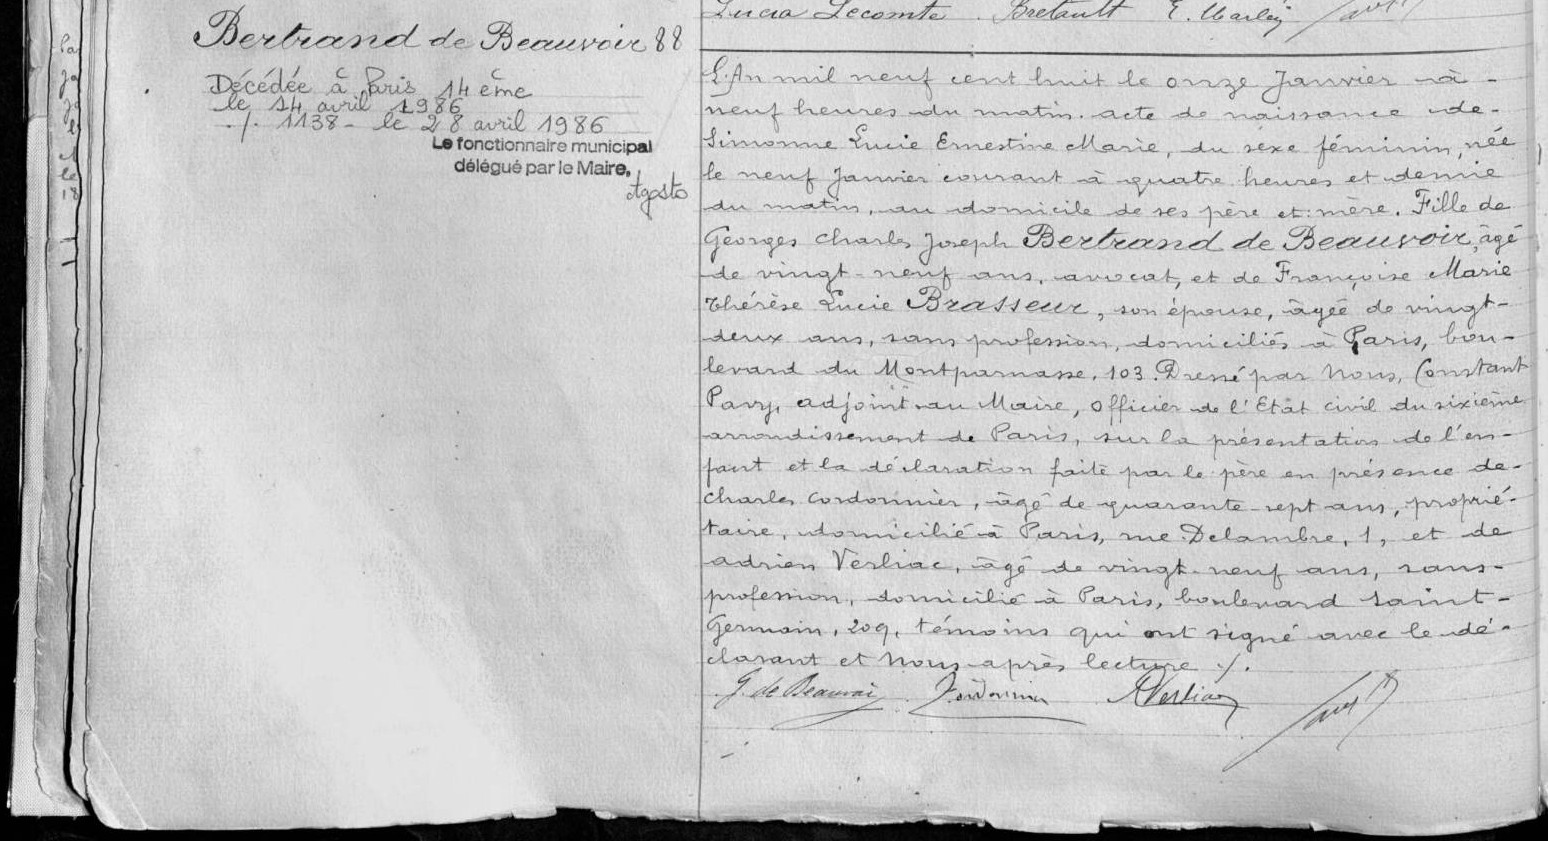 Lucia Lecomte Bretault E.
Bertrand de Beauvoir 88
Décédée à Paris 14ème
le 14 avril 1986
./. 1138 - le 28 avril 1986
Le fonctionnaire municipal
délégué par le Maire,
Agosto
L'An mil neuf cent huit le onze Janvier à
neuf heures du matin. acte de naissance de
Simonne Lucie Ernestine Marie, du sexe féminin, née
le neuf Janvier courant à quatre heures et demie
du matin, au domicile de ses père et mère. Fille de
Georges Charles Joseph Bertrand de Beauvoir, âgé
de vingt-neuf ans, avocat, et de Françoise Marie
Thérèse Lucie Brasseur, son épouse, âgée de vingt-
deux ans, sans profession, domiciliés à Paris, bou-
levard du Montparnasse, 103. Dressé par Nous, Constant
Pavy, adjoint au Maire, officier de l'Etat civil du sixième
arrondissement de Paris, sur la présentation de l'en-
fant et la déclaration faite par le père en présence de
Charles Cordonnier, âgé de quarante-sept ans, proprié-
taire, domicilié à Paris, rue Delambre, 1, et de
adrien Verliac, âgé de vingt-neuf ans, sans
profession, domicilié à Paris, boulevard Saint-
Germain, 209, témoins qui ont signé avec le dé-
clarant et Nous après lecture ./.
G. de Beauvoir Cordonnier AVerliac Pavy